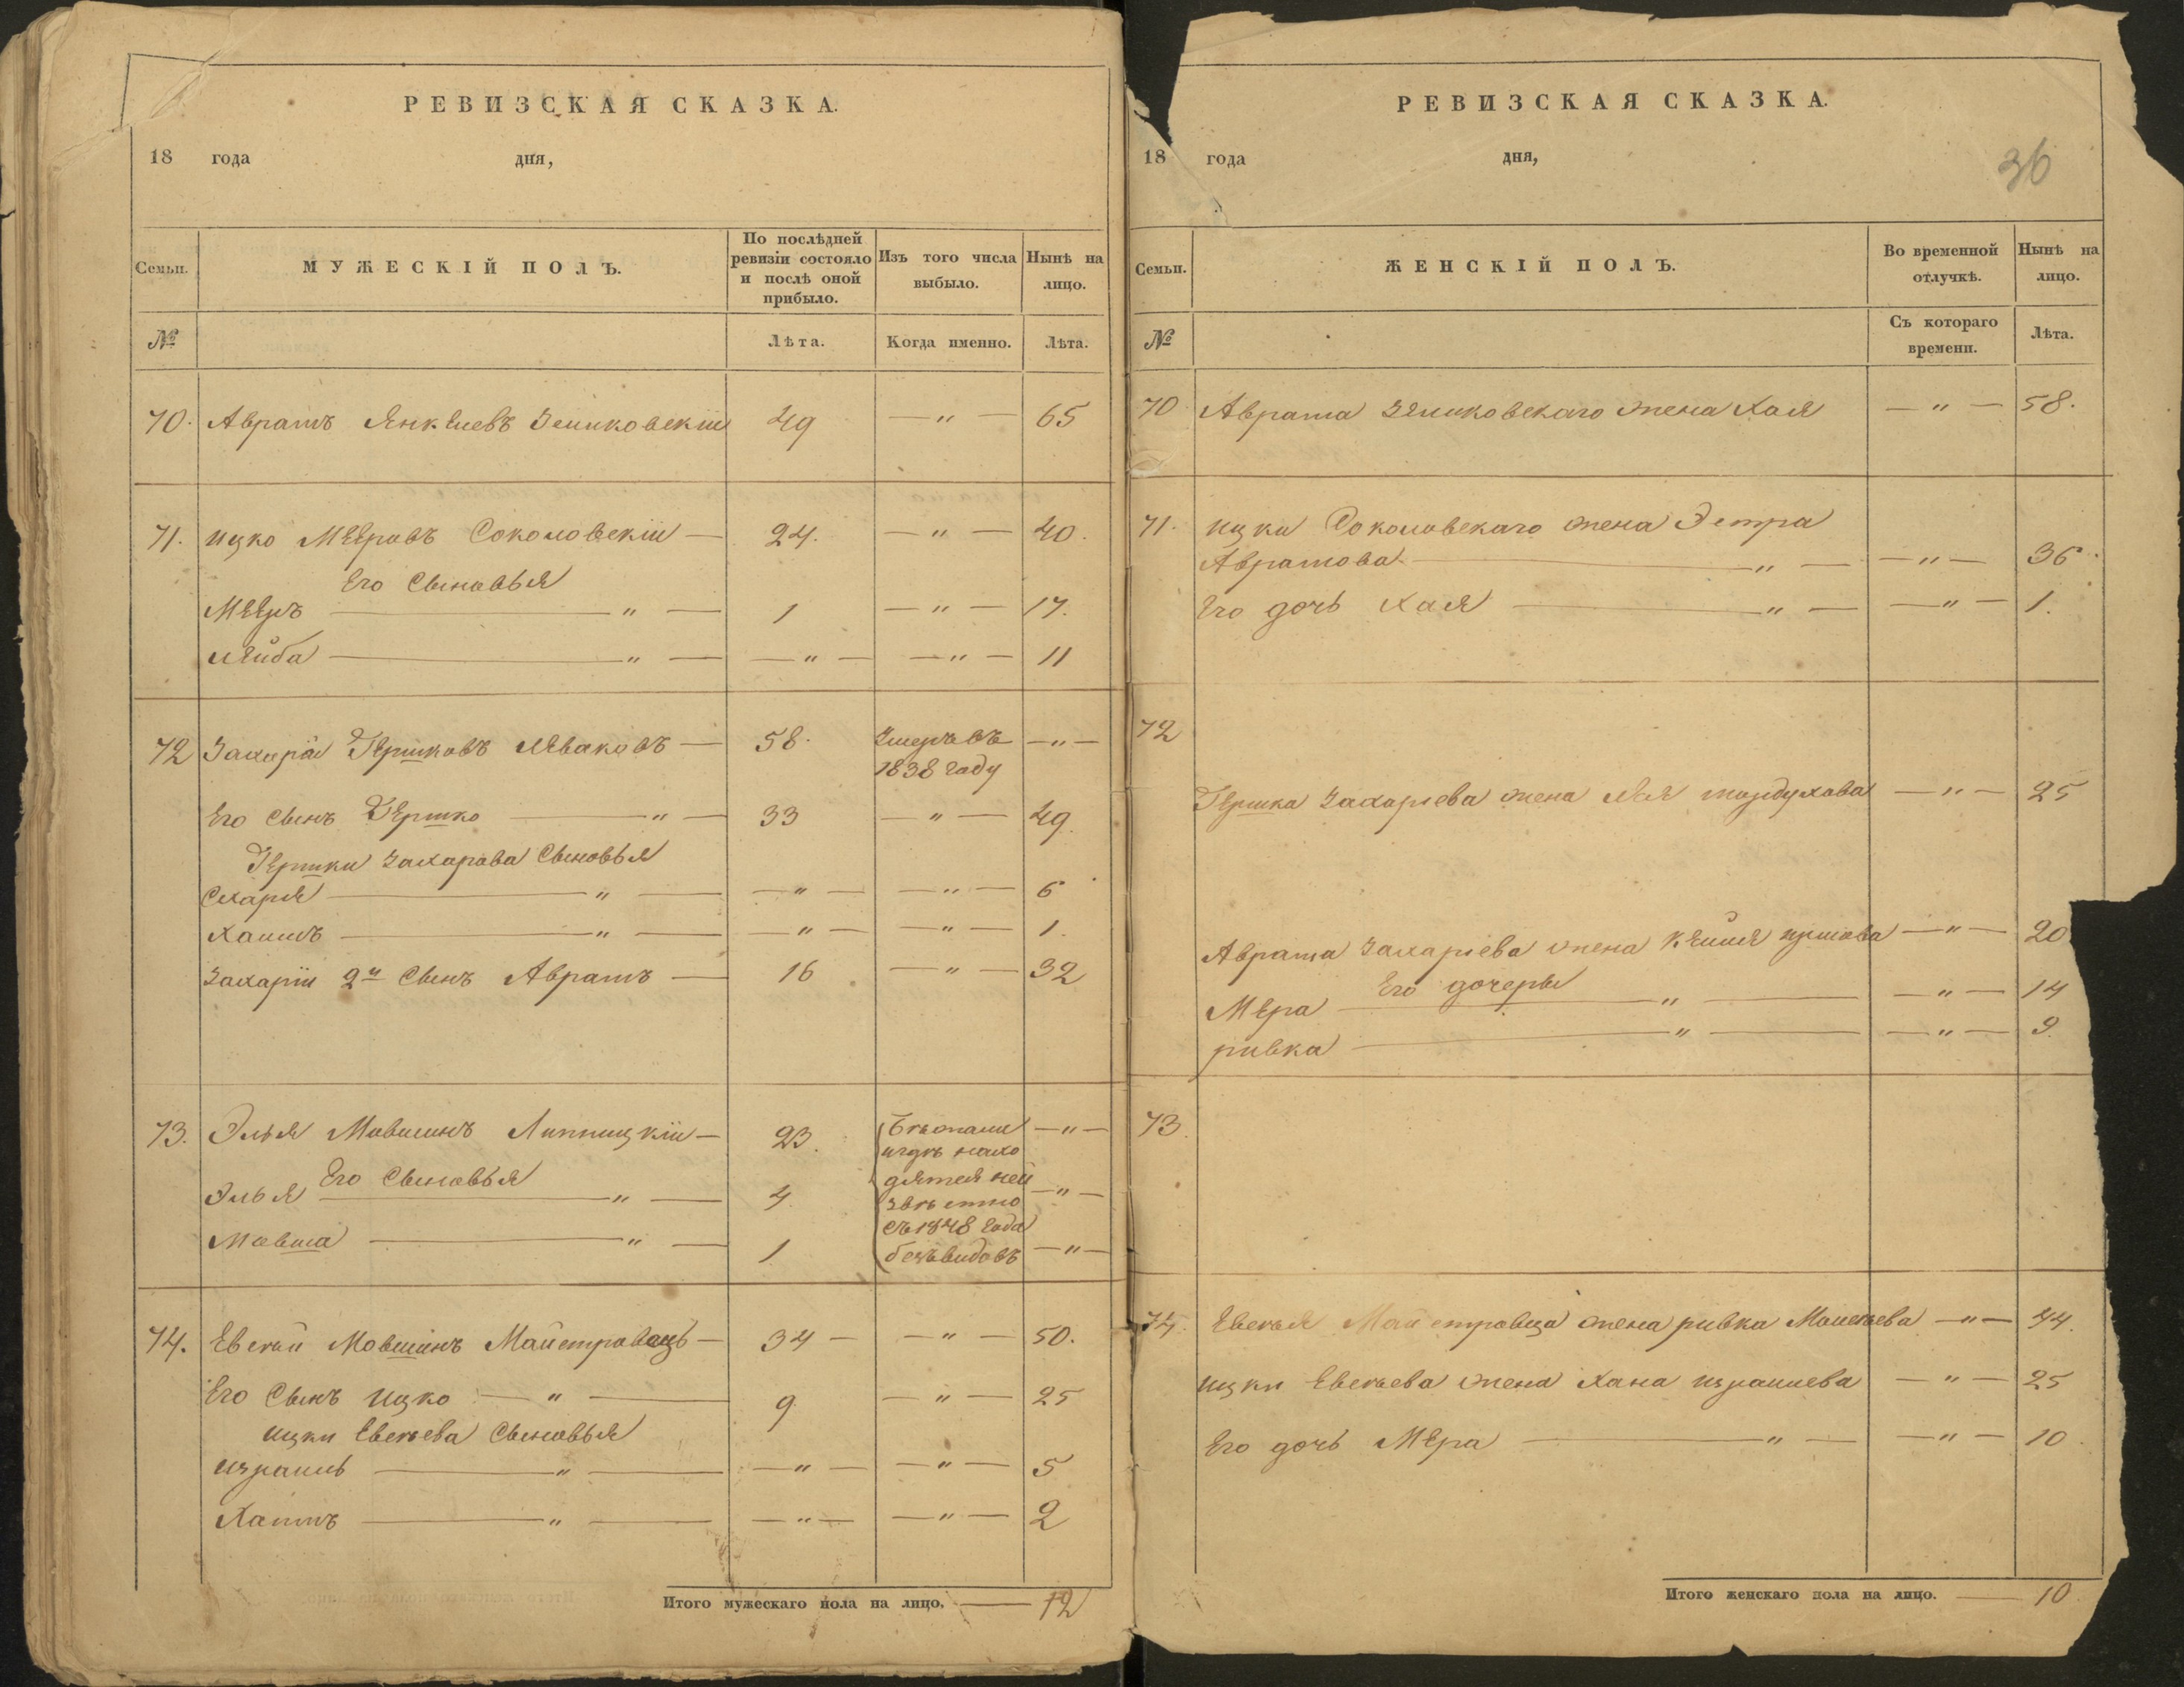 РЕВИЗСКАЯ СКАЗКА.
18 года дня,
Семьи. МУЖЕСКІЙ ПОЛЪ. По послѣдней ревизіи состояло и послѣ оной прибыло. Изъ того числа выбыло. Нынѣ на лицо.
№ Лѣта. Когда именно. Лѣта.
70. Аврамъ Янкелевъ 49 — " — 65
71. ицко Мееровъ Соколовскій — 24. — " — 40.
Его Сыновья
Мееръ — " — 1 — " — 17.
лейба — " — — " — — " — 11
72 Захарія Гершковъ Леваковъ — 58. Умеръ въ — " —
1838 году
Его Сынъ Гершко — " — 33 — " — 49.
Гершки Захарова Сыновья
Схария — " — — " — — " — 6
Хаимъ — " — — " — — " — 1.
Захарія 2й Сынъ Аврамъ — 16 — " — 32
73. Элья Мовшинъ Липницкій — 23. Бѣжали — " —
и гдѣ нахо
Его Сыновья дятся неи
Элья — " — 4. звѣстно — " —
съ 1848 года
Мовша — " — 1 безъ видовъ — " —
74. Евсѣй Мовшинъ Майстровецъ — 34 — — " — 50.
Его Сынъ Ицко — " — 9 — " — 25
ицки Евсѣева Сыновья
израиль — " — — " — — " — 5
Хаимъ — " — — " — — " — 2
Итого мужескаго пола на лицо. — 12
РЕВИЗСКАЯ СКАЗКА.
18 года дня,
36
Семьи. ЖЕНСКІЙ ПОЛЪ. Во временной отлучкѣ. Нынѣ на лицо.
№ Съ котораго времени. Лѣта.
70 Аврама жена Хая — " — 58.
71. ицки Соколовскаго жена Эстра
Аврамова — " — — " — 36.
Его дочь Хая — " — — " — 1.
72
Гершка Захарьева жена Лея мордухова — " — 25
Аврама Захарьева жена — " — 20
Его дочеры
Мера — " — — " — 14
ривка — " — — " — 9.
73.
74. Евсѣя Майстровца жена ривка — " — 44.
ицки Евсѣева жена Хана израилева — " — 25
Его дочь Мера — " — — " — 10.
Итого женскаго пола на лицо. — 10